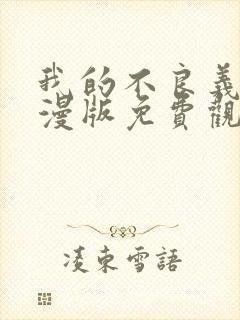 我的不良義
漫版免費觀
凌束雪語